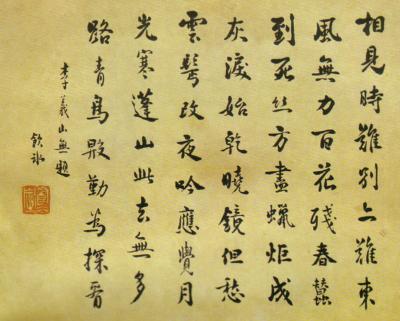 相見時難別亦難東
風無力百花殘春蠶
到死絲方盡蠟炬成
灰淚始乾曉鏡但愁
雲鬢改夜吟應覺月
光寒蓬山此去無多
路青鳥殷勤為探看
李義山無題
飲冰